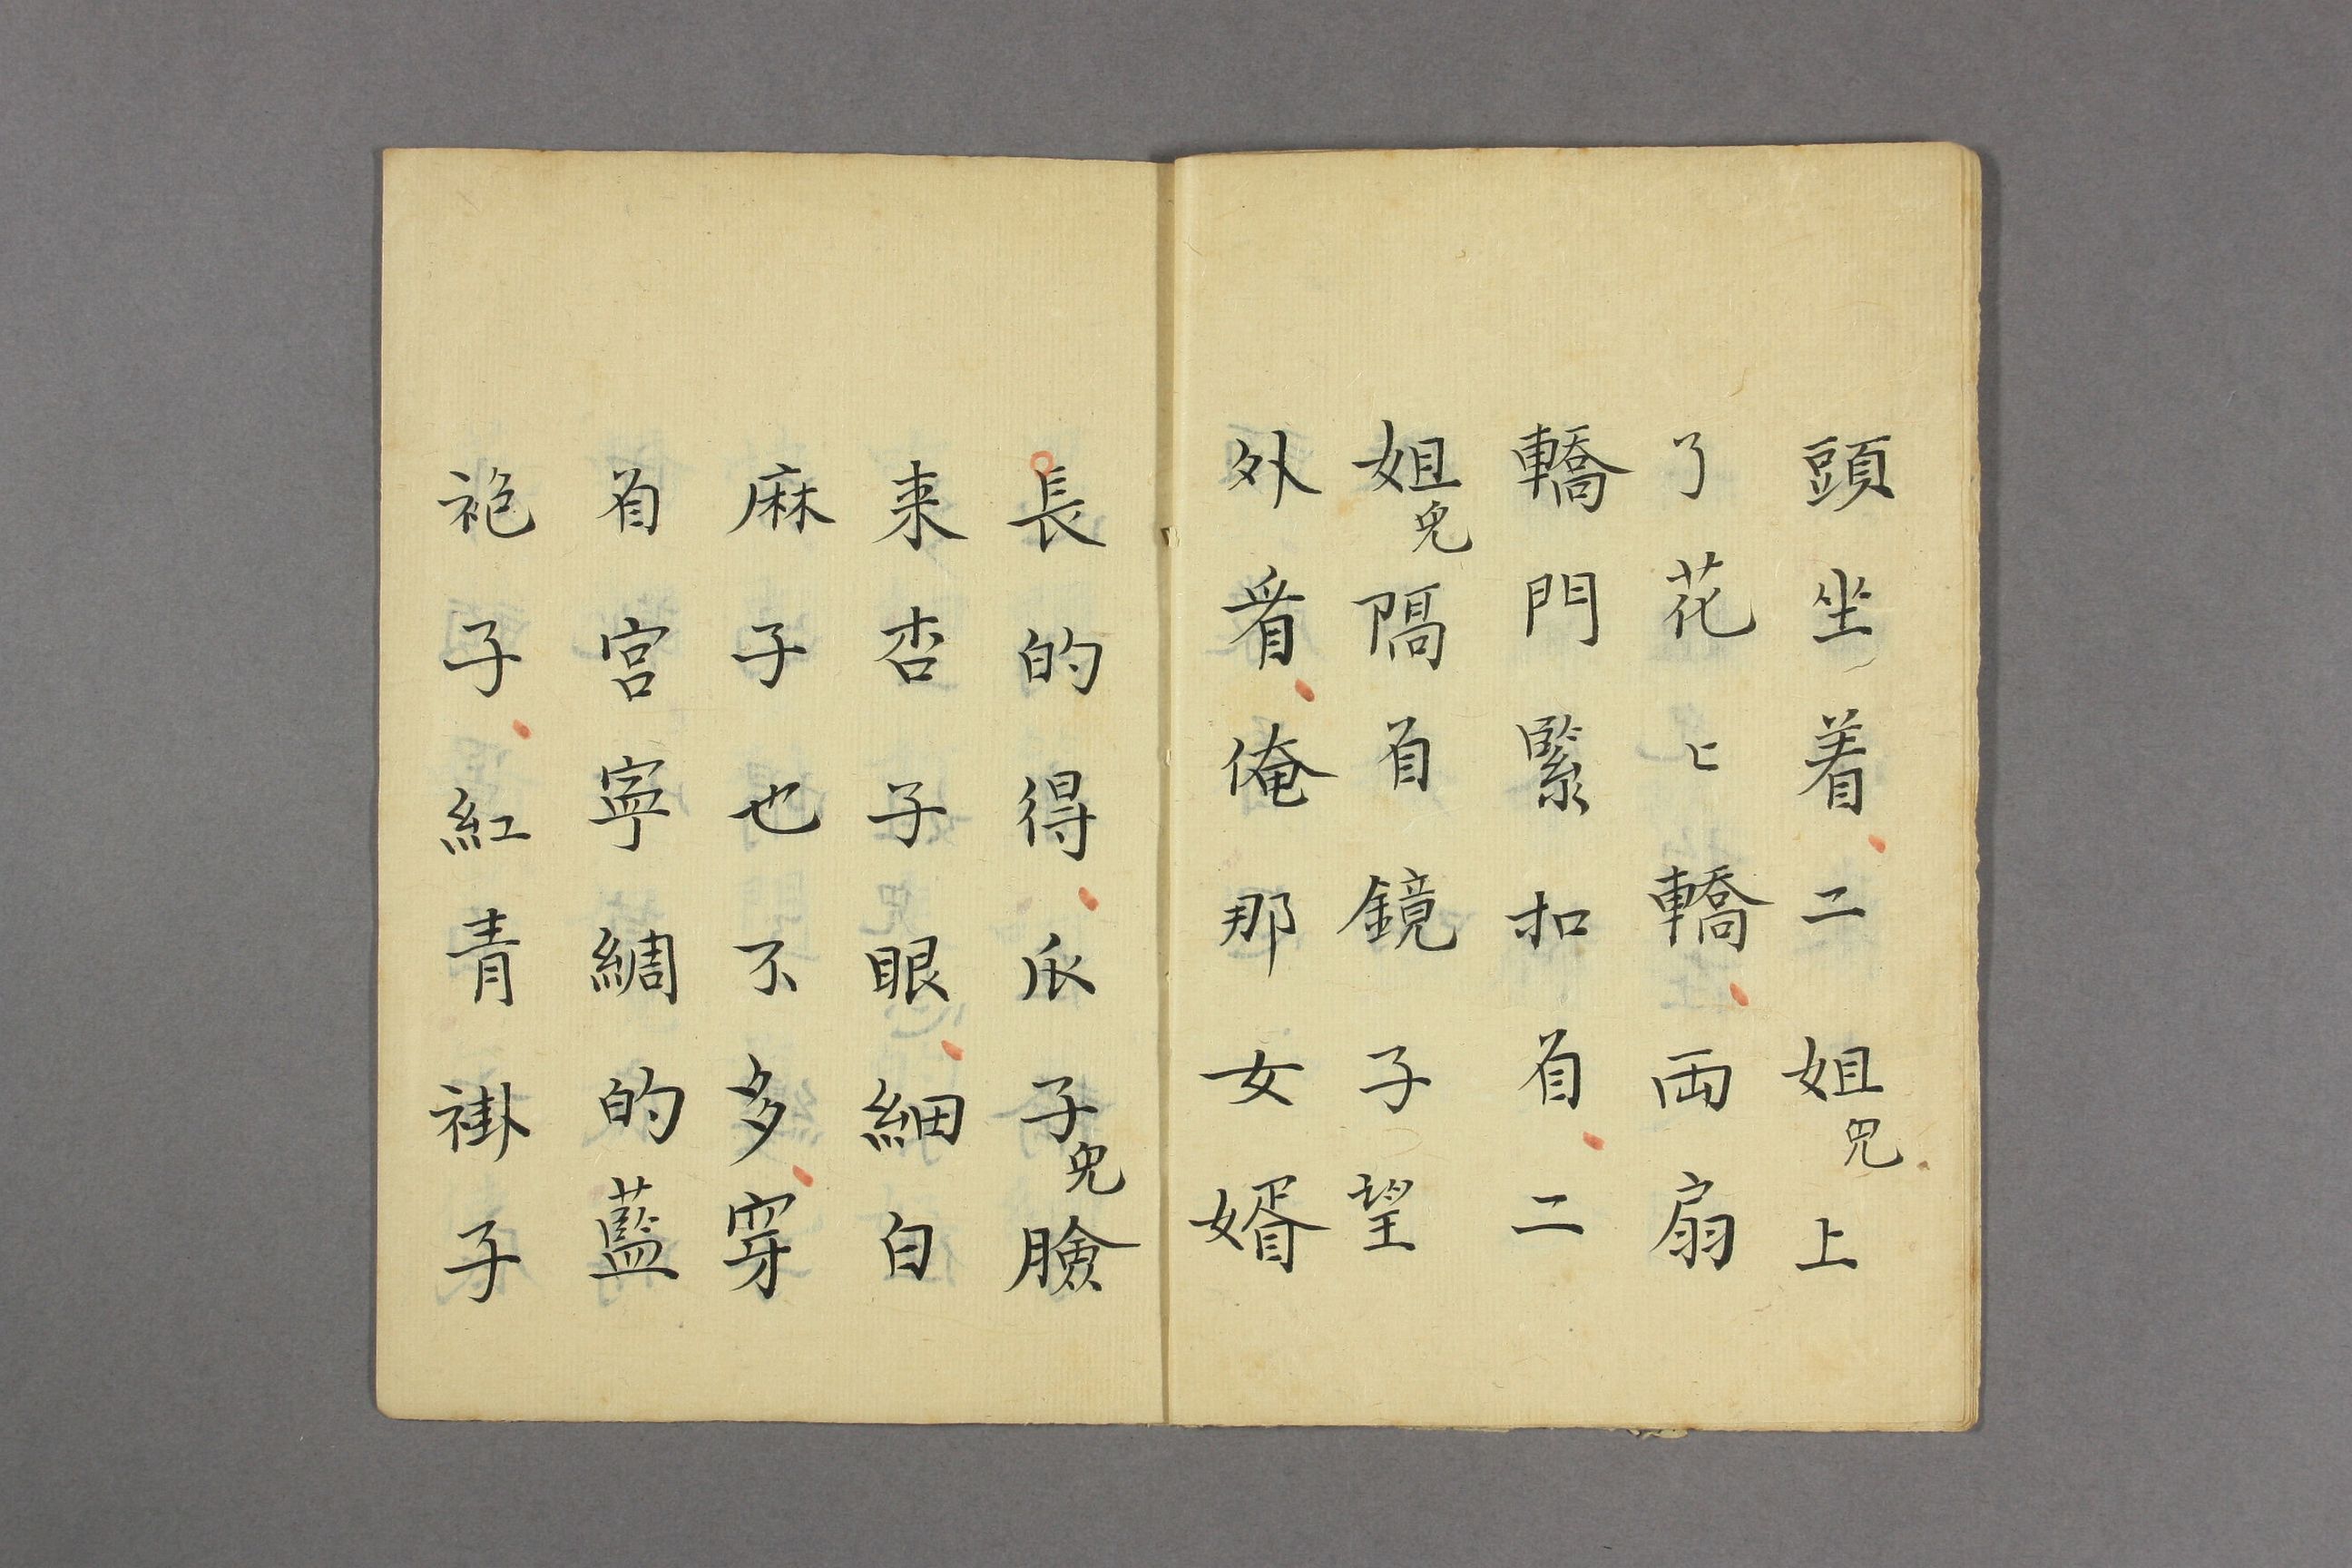 頭坐着二姐兒上
了花匕轎両扇
轎門緊扣着二
姐兒隔着鏡子望
外看俺那女婿
長的得瓜子兒臉
来杏子眼細白
麻子也不多穿
着宮寧綢的藍
袍子紅青褂子